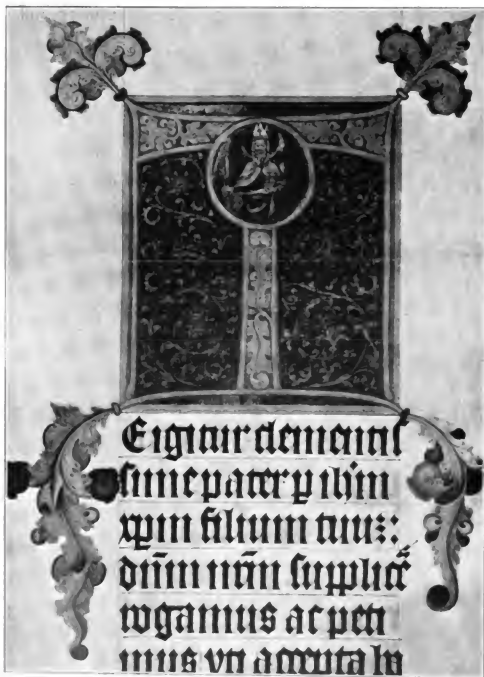 T
Eigitur clementis
sime pater p ihm
xpm filium tuuz:
dnm nrm supplice
rogamus ac peti
mus vti accepta ha